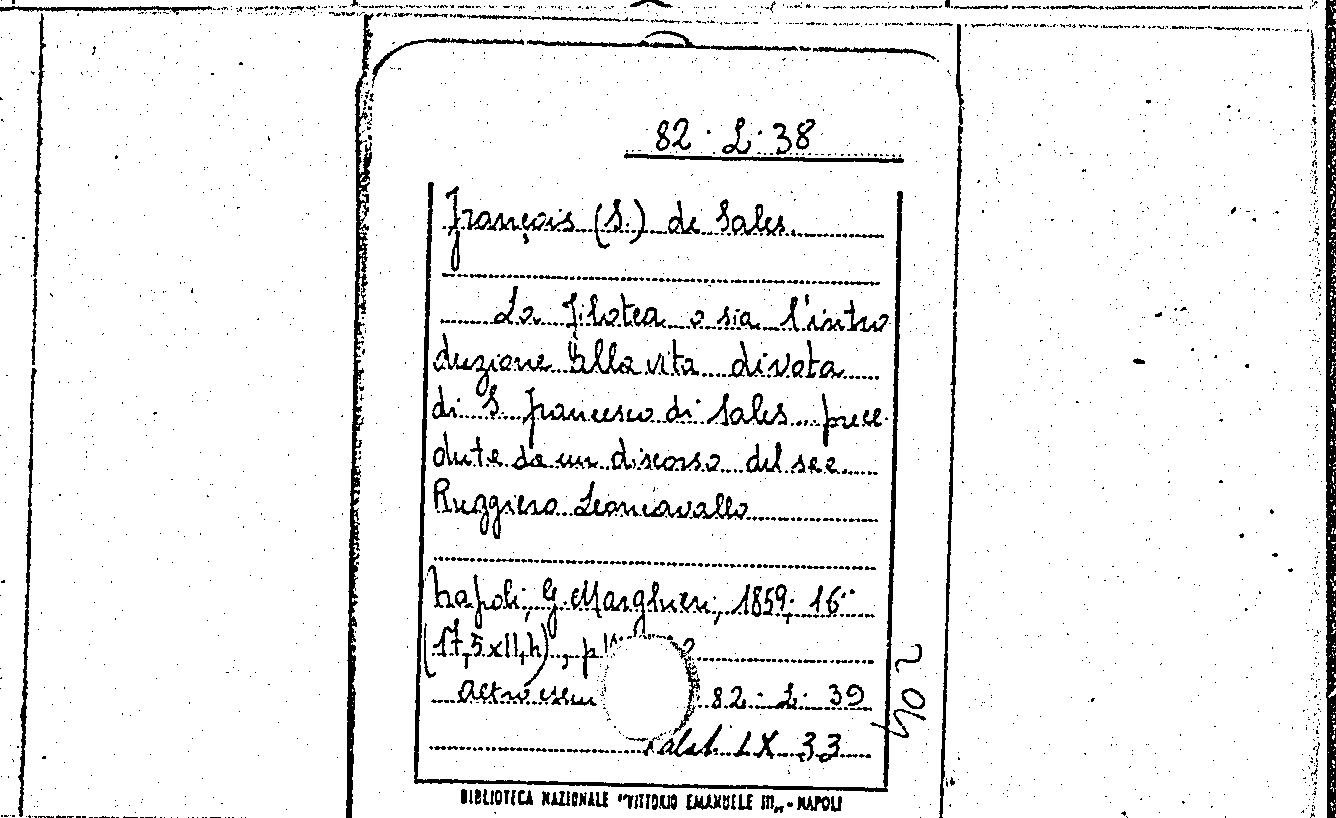 82. L. 38
François (S.) de Sales.
La Filotea o sia l'intro
duzione alla vita divota
di S. Francesco di Sales... prece
dute da un discorso del sac.
Ruggiero Leoncavallo
Napoli, G. Marghieri, 1859; 16°
(17,5x11,4),
altro esem 82. L. 39
LX 33
BIBLIOTECA NAZIONALE "VITTORIO EMANUELE III„ - NAPOLI